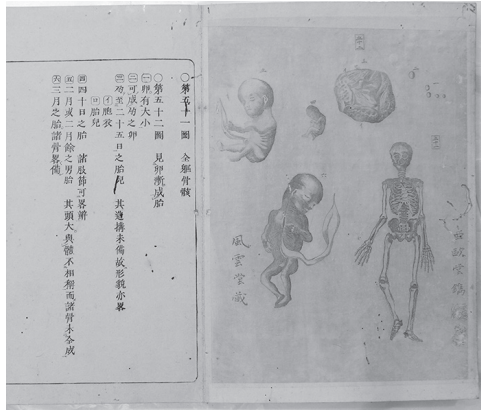 ○第五十一圖 全軀骨骸
○第五十二圖 見卵漸成胎
㊀卵有大小
㊁可成功之卵
㊂功至二十五日之胎兒 其造構未備故形貌亦畧
㋑胞衣
㋺胎兒
㊃四十日之胎 諸肢節可畧辨
㊄二月或二月餘之男胎 其頭大與體不相稱而諸骨未全成
㊅三月之胎諸骨畧備
風雲堂藏